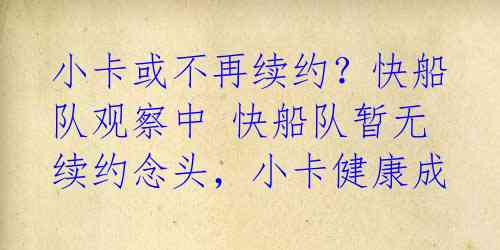 小卡或不再续约？快船
队观察中 快船队暂无
续约念头，小卡健康成